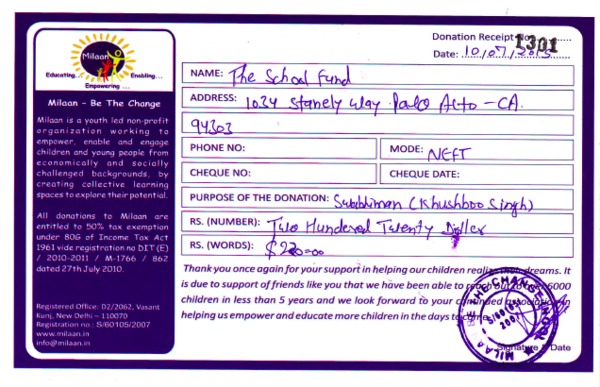 Donation Receipt No. 1301
Date: 10/07/2013
Milaan
Educating... Enabling...
Empowering ...
Milaan - Be The Change
Milaan is a youth led non-profit
organization working to
empower, enable and engage
children and young people from
economically and socially
challenged backgrounds, by
creating collective learning
spaces to explore their potential.
All donations to Milaan are
entitled to 50% tax exemption
under 80G of Income Tax Act
1961 vide registration no DIT (E)
/ 2010-2011 / M-1766 / 862
dated 27th July 2010.
Registered Office: D2/2062, Vasant
Kunj, New Delhi – 110070
Registration no.: S/60105/2007
www.milaan.in
info@milaan.in
NAME: The School Fund
ADDRESS: 1024 Stanely way Palo Alto - CA.
94303
PHONE NO: MODE: NEFT
CHEQUE NO: CHEQUE DATE:
PURPOSE OF THE DONATION: Swabhiman (Khushboo Singh)
RS. (NUMBER): Two Hundered Twenty Doller
RS. (WORDS): $220=00
Thank you once again for your support in helping our children realize their dreams. It
is due to support of friends like you that we have been able to reach out to over 6000
children in less than 5 years and we look forward to your continued association in
helping us empower and educate more children in the days to come.
Signature & Date